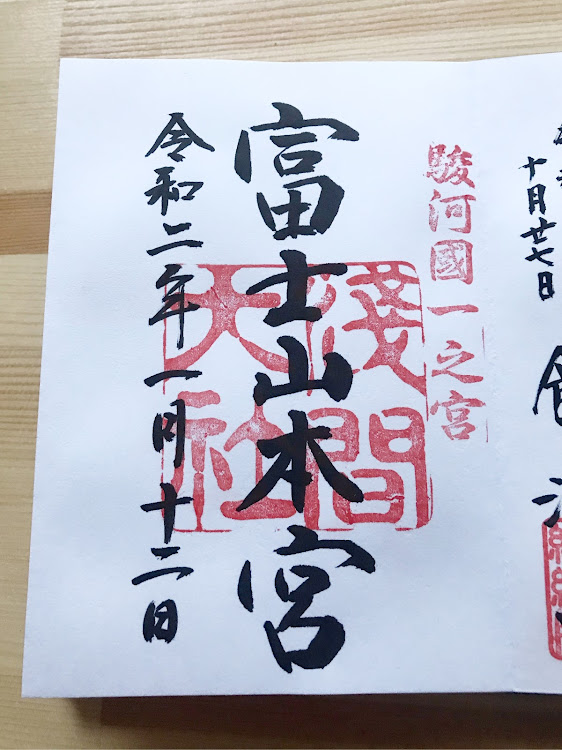 十月廿七日
駿河國一之宮
富士山本宮
淺間
大社
令和二年一月十二日